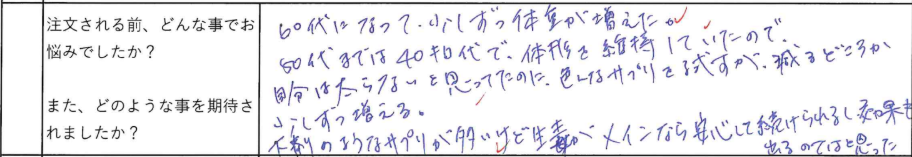 注文される前、どんな事でお
悩みでしたか？
また、どのような事を期待さ
れましたか？
60代になって、少しずつ体重が増えたか
50代までは40キロ代で、体形を維持していたので、
自分は太らないと思ってたのに、色んなサプリを試すが、減るどころか
少しずつ増える。
下剤のようなサプリが多いけど生姜がメインなら安心して続けられるし効果も
出るのではと思った